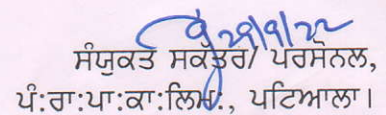 29/9/22
ਸੰਯੁਕਤ ਸਕੱਤਰ/ ਪਰਸੋਨਲ,
ਪੰ:ਰਾ:ਪਾ:ਕਾ:ਲਿਮ:, ਪਟਿਆਲਾ।